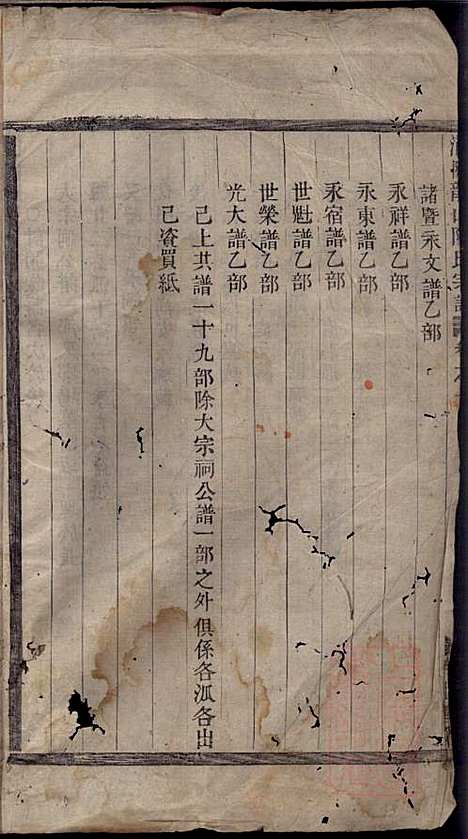 諸暨永文譜乙部
永祥譜乙部
永東譜乙部
永宿譜乙部
世魁譜乙部
世榮譜乙部
光大譜乙部
己上共譜一十九部除大宗祠公譜一部之外俱係各派各出
己資買紙